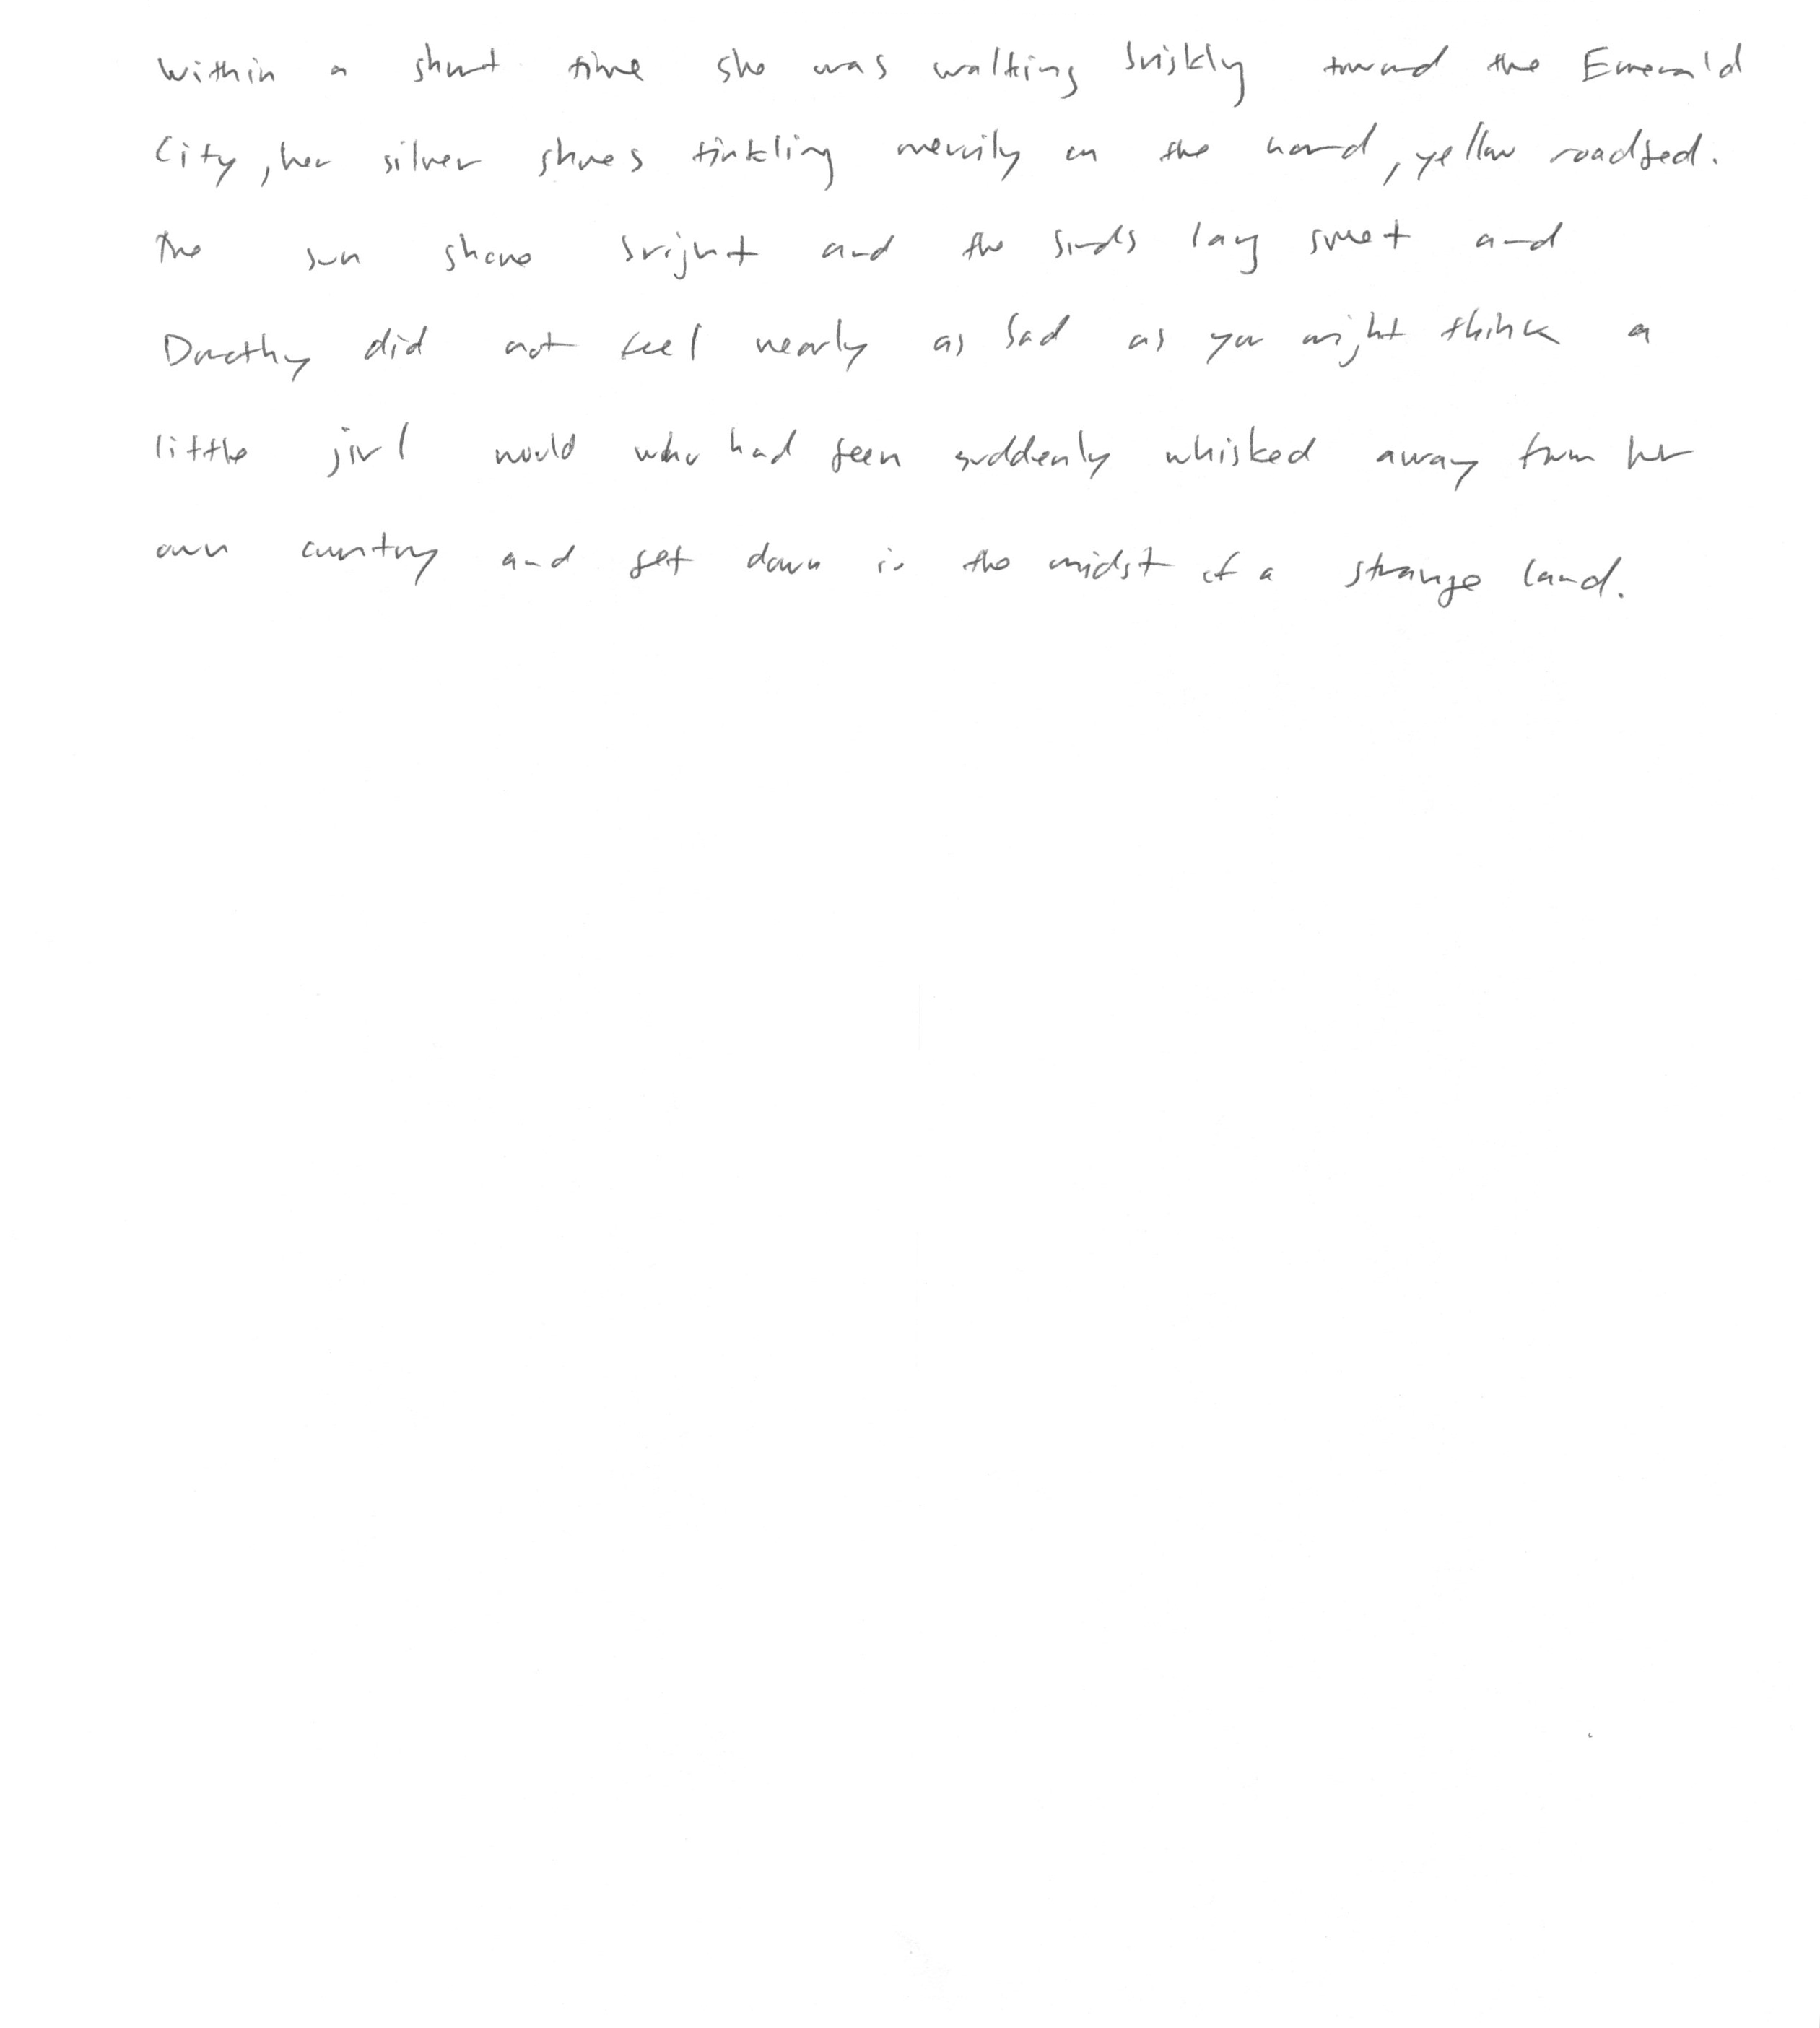 Within a short time she was walking briskly toward the Emerald
City, her silver shoes tinkling merrily on the hard, yellow roadbed.
The sun shone bright and the birds sang sweet and
Dorothy did not feel nearly as bad as you might think a
little girl would who had been suddenly whisked away from her
own country and set down in the midst of a strange land.